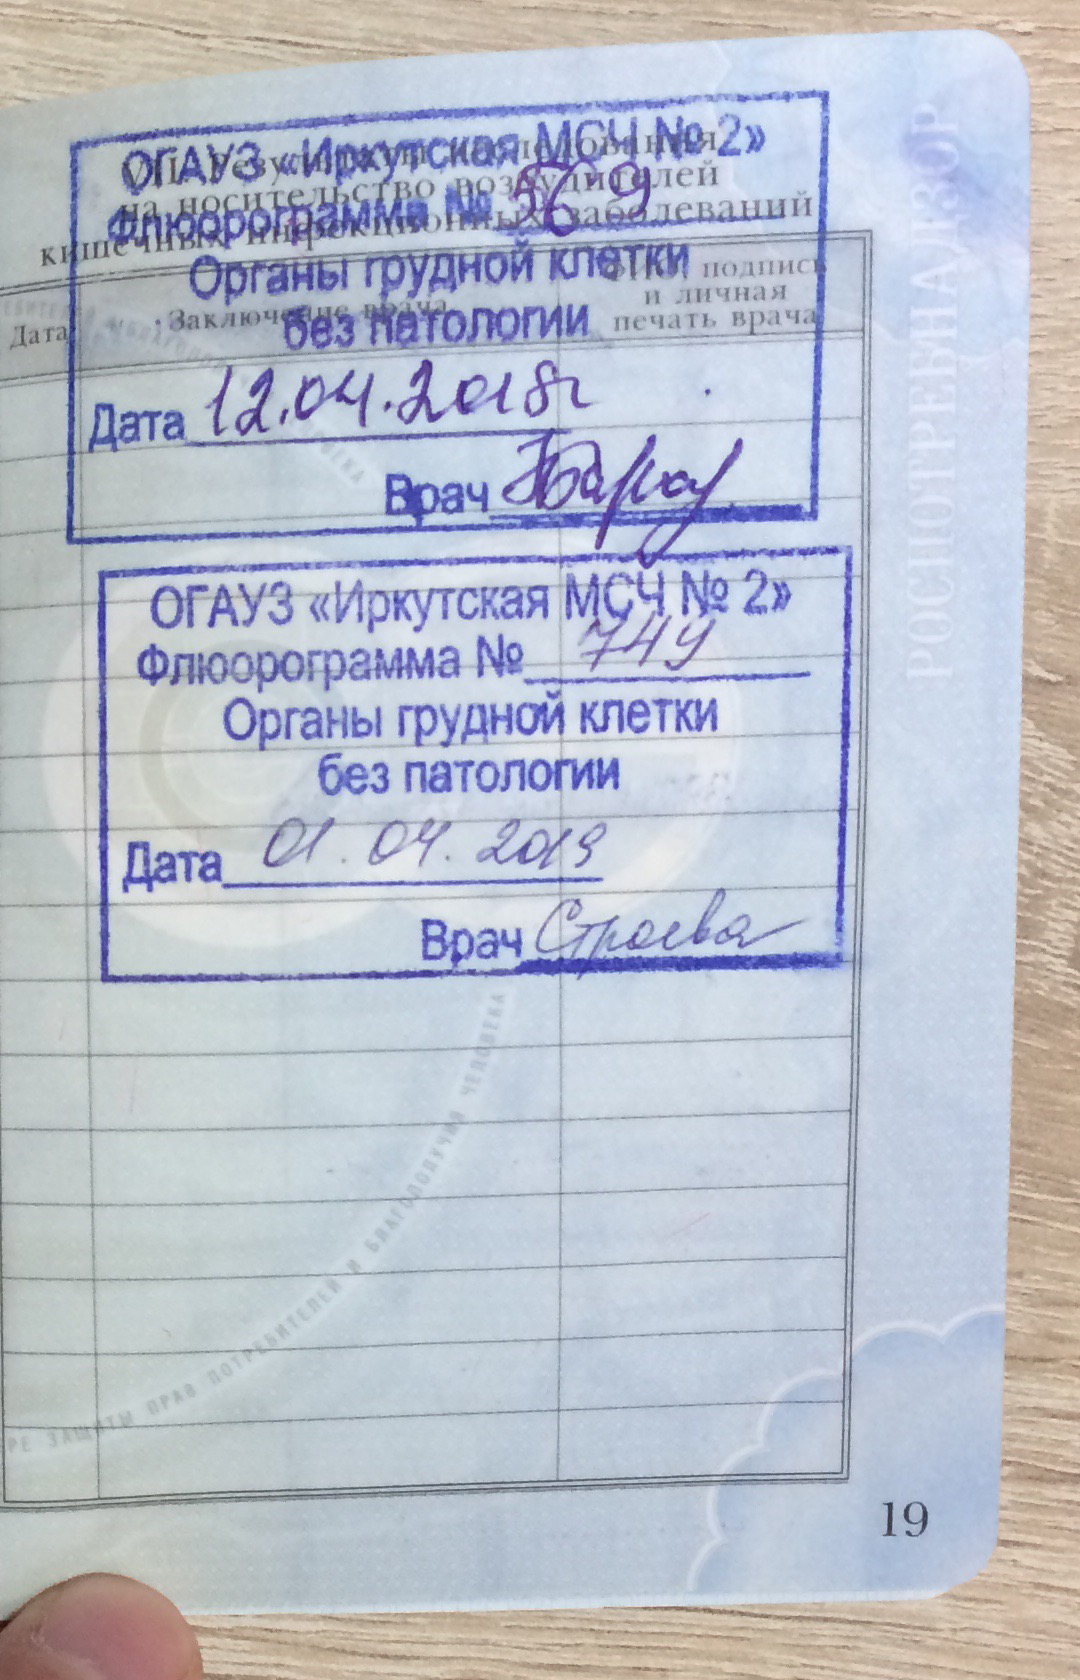 ОГАУЗ «Иркутская МСЧ № 2»
на носительство возбудителей
Флюорограмма №
кишечных инфекционных заболеваний
Органы грудной клетки
подпись
и личная
печать врача
Дата
Заключение врача
без патологии
Дата 12.04.2018г
Врач
ОГАУЗ «Иркутская МСЧ № 2»
Флюорограмма № 749
Органы грудной клетки
без патологии
Дата 01.04.2019
Врач Строева
РОСПОТРЕБНАДЗОР
ЗАЩИТЫ ПРАВ ПОТРЕБИТЕЛЕЙ И БЛАГОПОЛУЧИЯ ЧЕЛОВЕКА
19